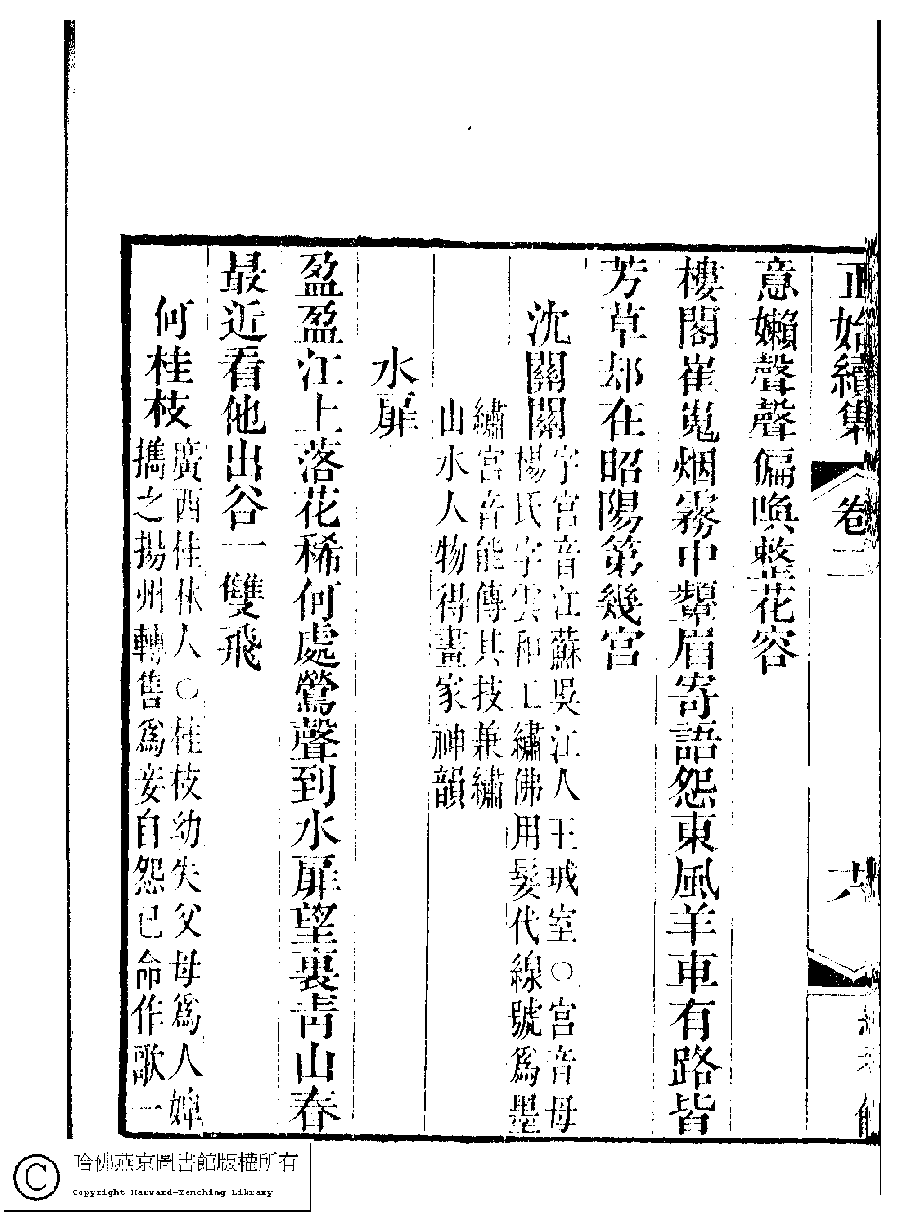 正始續集 卷二 六
意嬾聲聲偏喚整花容
樓閣崔嵬烟霧中顰眉寄語怨東風羊車有路皆
芳草却在昭陽第幾宮
沈關關
字宮音江蘇吳江人王珹室○宮音母
楊氏字雲和工繡佛用髮代線號爲墨
繡宮音能傳其技兼繡
山水人物得畫家神韻
水扉
盈盈江上落花稀何處鶯聲到水扉望裏靑山春
最近看他出谷一雙飛
何桂枝
廣西桂林人○桂枝幼失父母爲人婢
攜之揚州轉售爲妾自怨已命作歌一
哈佛燕京圖書館版權所有
Copyright Harvard-Yenching Library